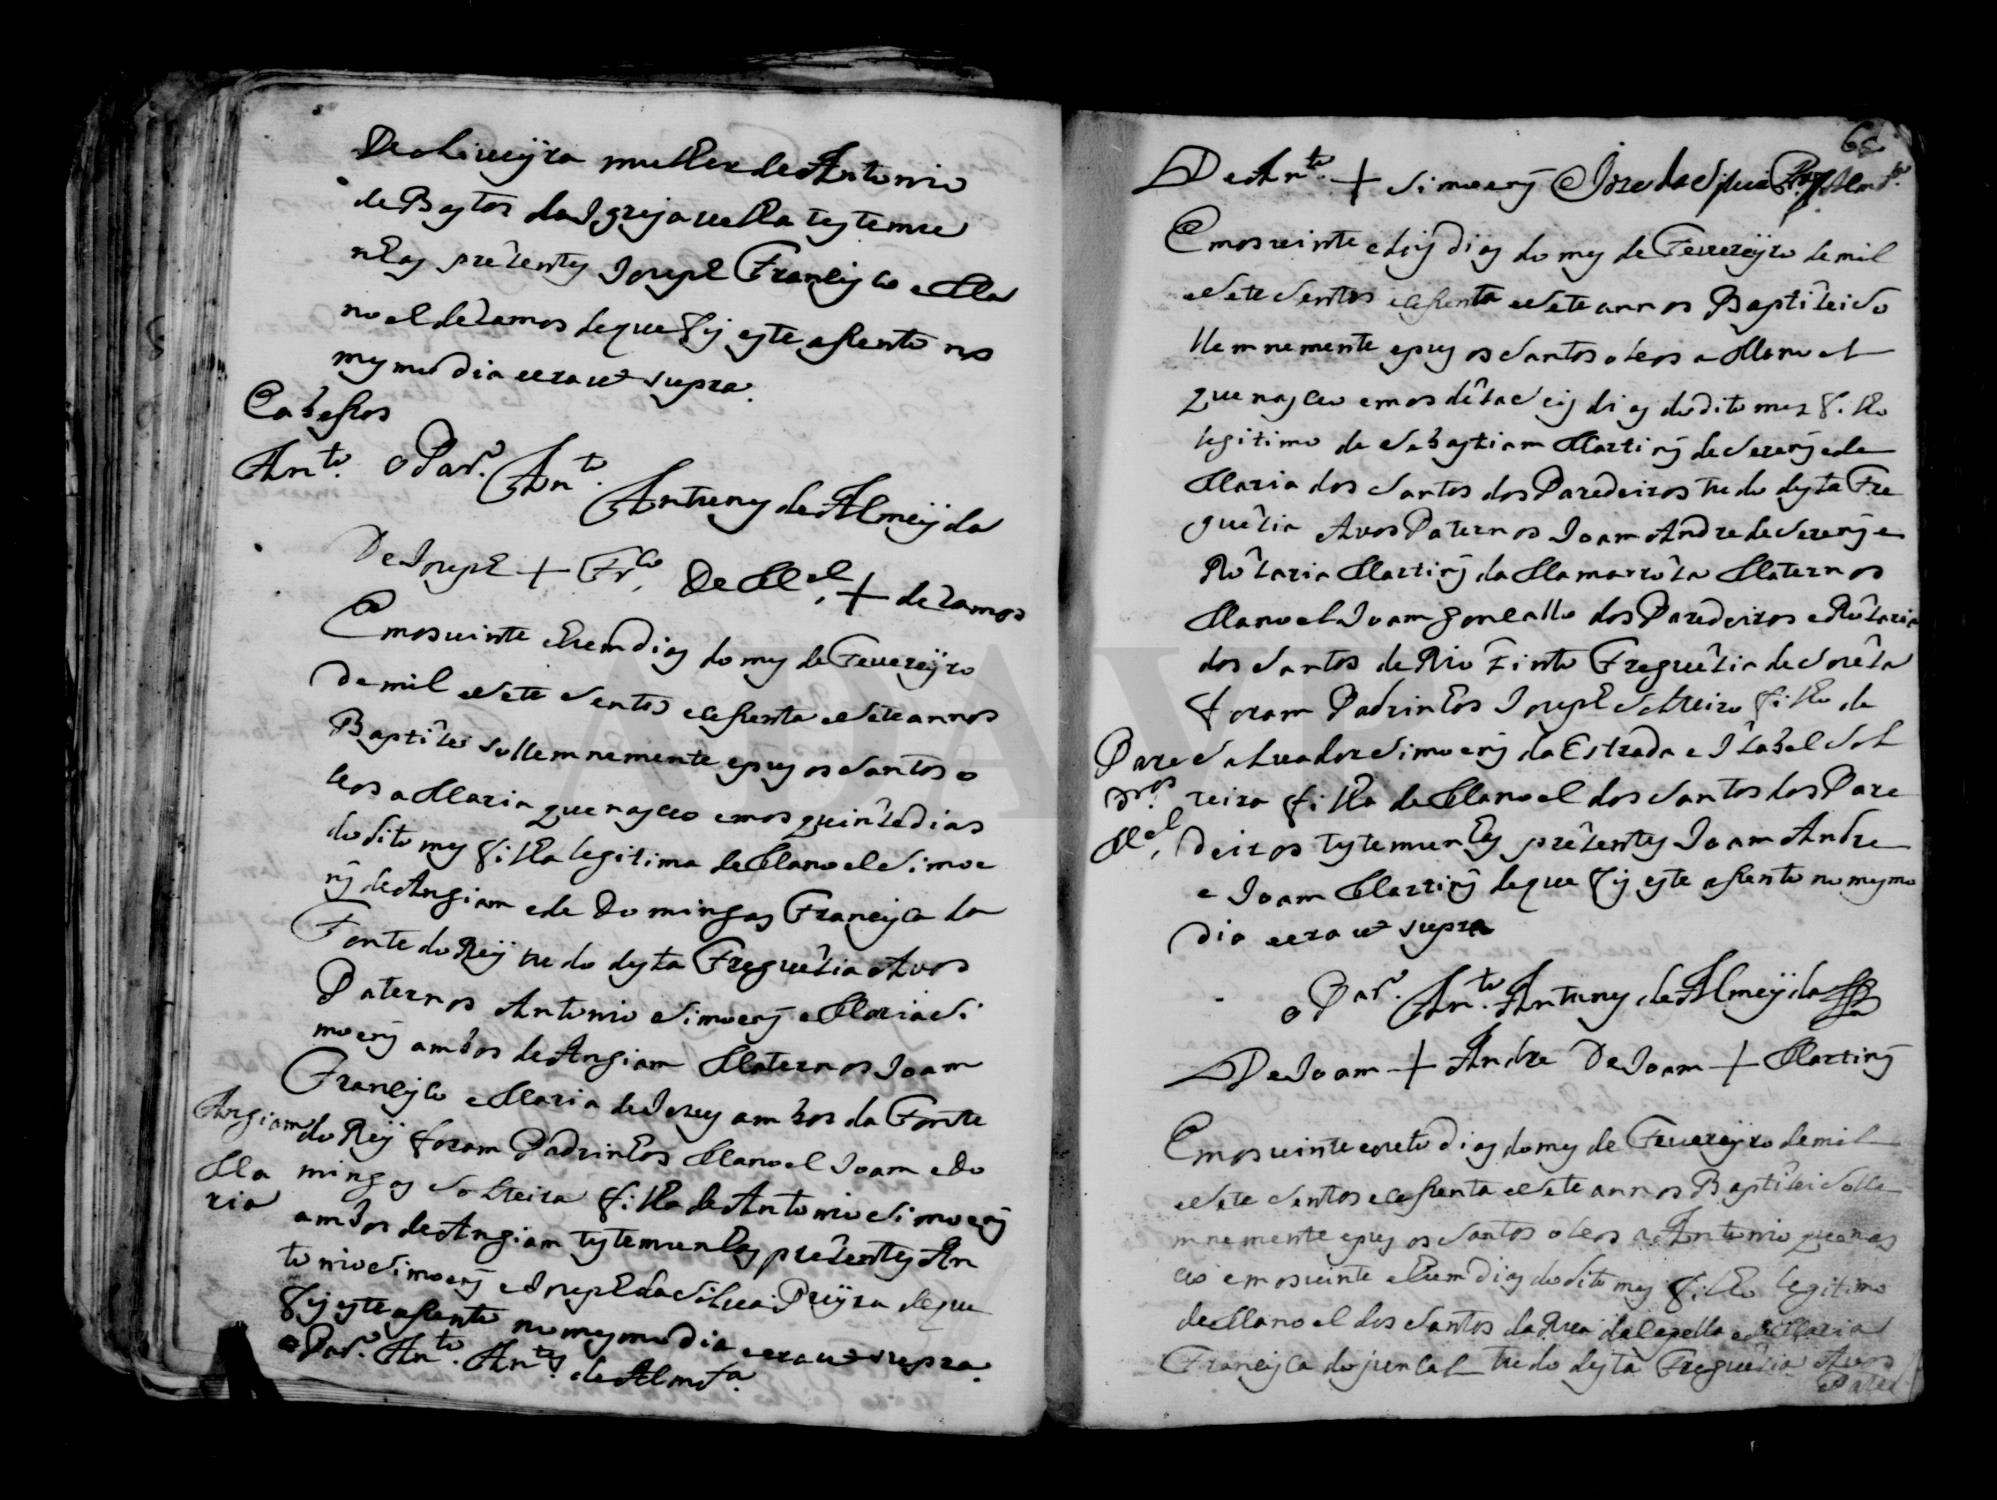 De oliveyra mulher de Antonio
de Bastos da Igreja velha testemu
nhas prezentes Joseph Francisco e Ma
noel de Lamos de que fis este assento no
mesmo dia e era ut supra.
Cabessos
Ant.to o Par.o Ant.to Antunes de Almeyda
De Joseph + Fr.co, De M.el, + de Lamos
Em os vinte e hum dias do mes de Fevereyro
de mil e sete sentos e cesenta e sete annos
Baptizei sollemnemente e pus os santos o
leos a Maria que nasceo em os quinze dias
do dito mes filha legitima de Manoel Simoe
ns de Angiam e de Domingas Francisca da
Fonte do Rey tudo desta Freguezia Avos
Paternos Antonio Simoens e Maria Si
moens ambos de Angiam Maternos Joam
Francisco e Maria de Jesus ambos da Fonte
Angiam do Rey foram Padrinhos Manoel Joam e Do
Ma mingas Solteira filha de Antonio Simoens
ria ambos de Angiam testemunhas prezentes An
tonio Simoens e Joseph da Silva Preyra de que
fis este assento no mesmo dia e era ut supra.
o Par.o Ant.to Ant.es de Almd.a
68
De Ant.to + Simoens Joze da Silva
Em os vinte e seis dias do mes de Fevereyro de mil
e sete sentos e cesenta e sete annos Baptizei so
llemnemente e pus os santos oleos a Manoel
que nasceo em os dezaceis dias do dito mez filho
legitimo de Sebastiam Martins de Serens e de
Maria dos Santos dos Paredeiros tudo desta Fre
guezia Avos Paternos Joam Andre de Serens e
Rozaria Martins da Mamarroza Maternos
Manoel Joam gonsallo dos Paredeiros e Rozaria
dos Santos de Rio Tinto Freguezia de Soreza
foram Padrinhos Joseph Solteiro filho de
Pare Salvador Simoens da Estrada e Izabel Sol
dr.os teira filha de Manoel dos Santos dos Pare
M.el, deiros testemunhas prezentes Joam Andre
e Joam Martins de que fis este assento no mesmo
dia e era ut supra
o Par.o Ant.to Antunes de Almeyda
De Joam + Andre De Joam + Martins
Em os vinte e oito dias do mes de Fevereyro de mil
e sete sentos e cesenta e sete annos Baptizei solle
mnemente e pus os santos oleos a Antonio que nas
ceo em os vinte e hum dias do dito mes filho legitimo
de Manoel dos Santos da Rua da Capella e de Maria
Francisca do juncal tudo desta Freguezia Avos
Pater
ADAVR